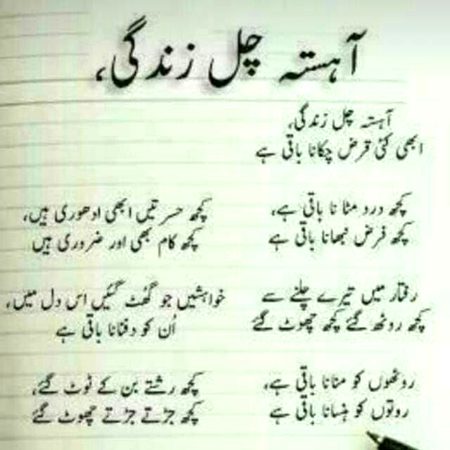 آہستہ چل زندگی،
آہستہ چل زندگی،
ابھی کئی قرض چکانا باقی ہے
کچھ درد مٹانا باقی ہے،
کچھ فرض نبھانا باقی ہے
رفتار میں تیرے چلنے سے
کچھ روٹھ گئے کچھ چھوٹ گئے
روٹھوں کو منانا باقی ہے،
روتوں کو ہنسانا باقی ہے
کچھ حسرتیں ابھی ادھوری ہیں،
کچھ کام بھی اور ضروری ہیں
خواہشیں جو گھٹ گئیں اس دل میں،
اُن کو دفنانا باقی ہے
کچھ رشتے بن کے ٹوٹ گئے،
کچھ جڑتے جڑتے چھوٹ گئے